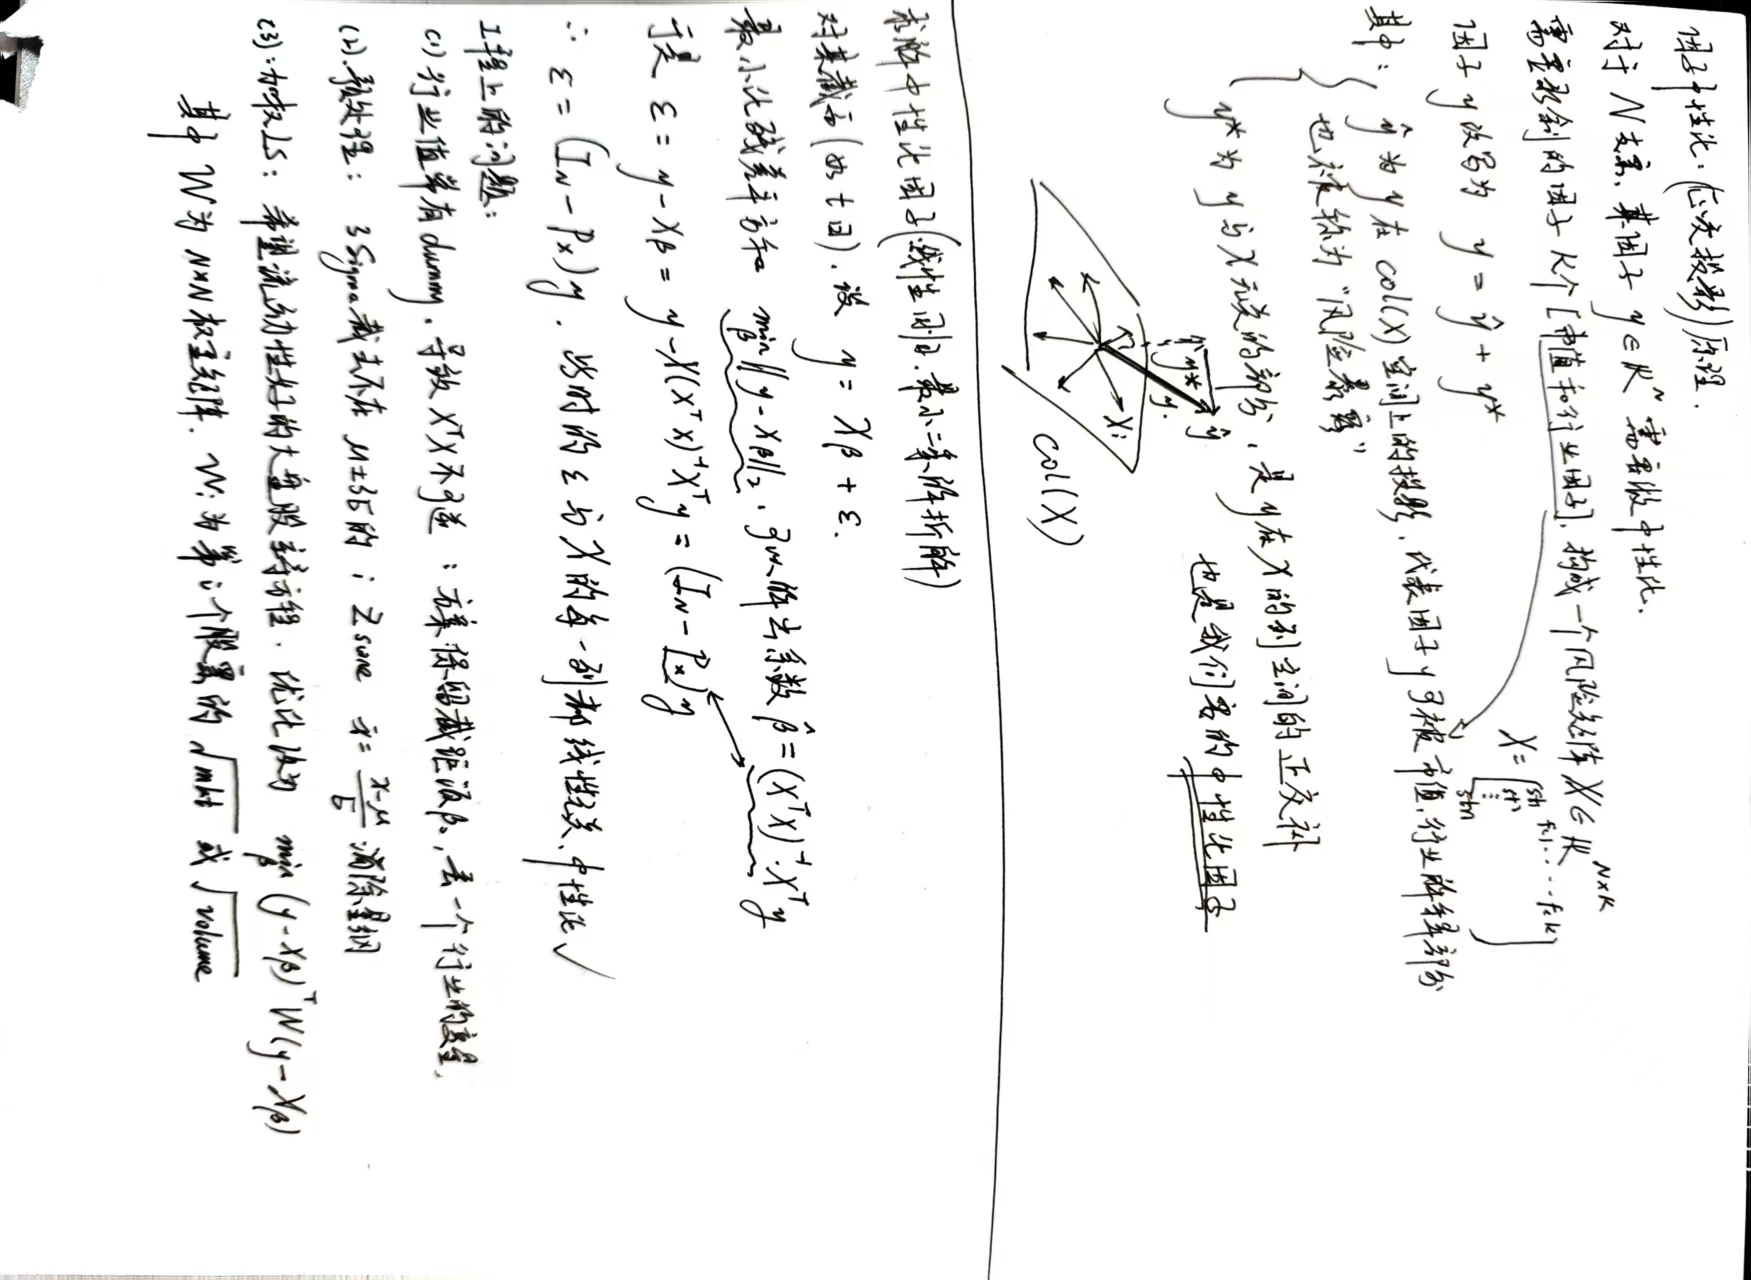 因子中性化：(正交投影)原理.
对于 N 支票, 某因子 y ∈ R^N 需要做中性化.
需要剥的因子 K个 [市值和行业因子], 构成一个风险矩阵 X ∈ R^{N×K}
因子 y 改写为 y = ŷ + y*
X =
其中：
ŷ 为 y 在 col(X) 空间上的投影, 代表因子 y 可被市值, 行业解释部分
也被称为 "风险暴露"
y* 为 y 与 X 无关的部分, 是 y 在 X 的列空间的正交补
也是我们要的中性化因子
y*
y
ŷ
Xi
col(X)
求解中性化因子(线性回归, 最小二乘解析解)
对某截面(如 t 日), 设 y = Xβ + ε.
最小化残差平方和 min_β ||y - Xβ||₂, 可以解出系数 β̂ = (XᵀX)⁻¹·Xᵀy
于是 ε = y - Xβ = y - X(XᵀX)⁻¹Xᵀy = (I_N - P_x)y
∴ ε = (I_N - P_x)y, 此时的 ε 与 X 的每一列都线性无关, 中性化 ✓
工程上的问题：
(1) 行业值常有 dummy, 导致 XᵀX 不可逆：方案保留截距项 β₀, 丢一个行业的变量.
(2). 预处理： 3Sigma 截去不在 μ±3σ 的； Zscore = (x-μ)/σ 消除量纲
(3)：加权LS： 希望流动性好的大盘股主导方程. 优化改为 min_β (y-Xβ)ᵀW(y-Xβ)
其中 W 为 N×N 权重矩阵. Wi 为第 i 个股票的 √mkt 或 √volume